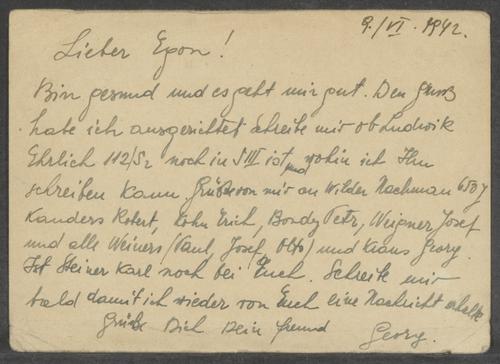 9./VI. 1942.
Lieber Egon!
Bin gesund und es geht mir gut. Den Gruß
habe ich ausgerichtet schreibe mir ob Ludwik
Ehrlich 112/52 noch in S III ist und wohin ich Ihm
schreiben kann Grüße von mir an Wilder Nachman
Kanders Robert, Kohn Erich, Bondy Petr, Weigner Josef
und alle Weiners (Paul, Josef, Otto) und Kraus Georg.
Ist Steiner Karl noch bei Euch. Schreibe mir
bald damit ich wieder von Euch eine Nachricht erhalte
Grüßt Dich Dein freund
Georg.